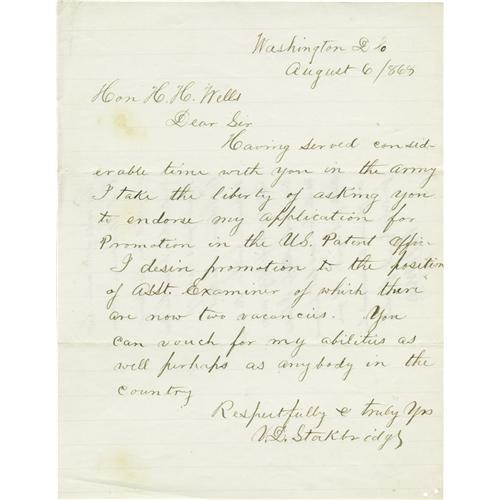 Washington D C
August 6/868
Hon H. H. Wells
Dear Sir
Having served consid-
erable time with you in the army
I take the liberty of asking you
to endorse my application for
Promotion in the U.S. Patent Office
I desire promotion to the position
of Asst. Examiner of which there
are now two vacancies. You
can vouch for my abilities as
well perhaps as anybody in the
country
Respectfully & truly Yrs
V. D. Stockbridge